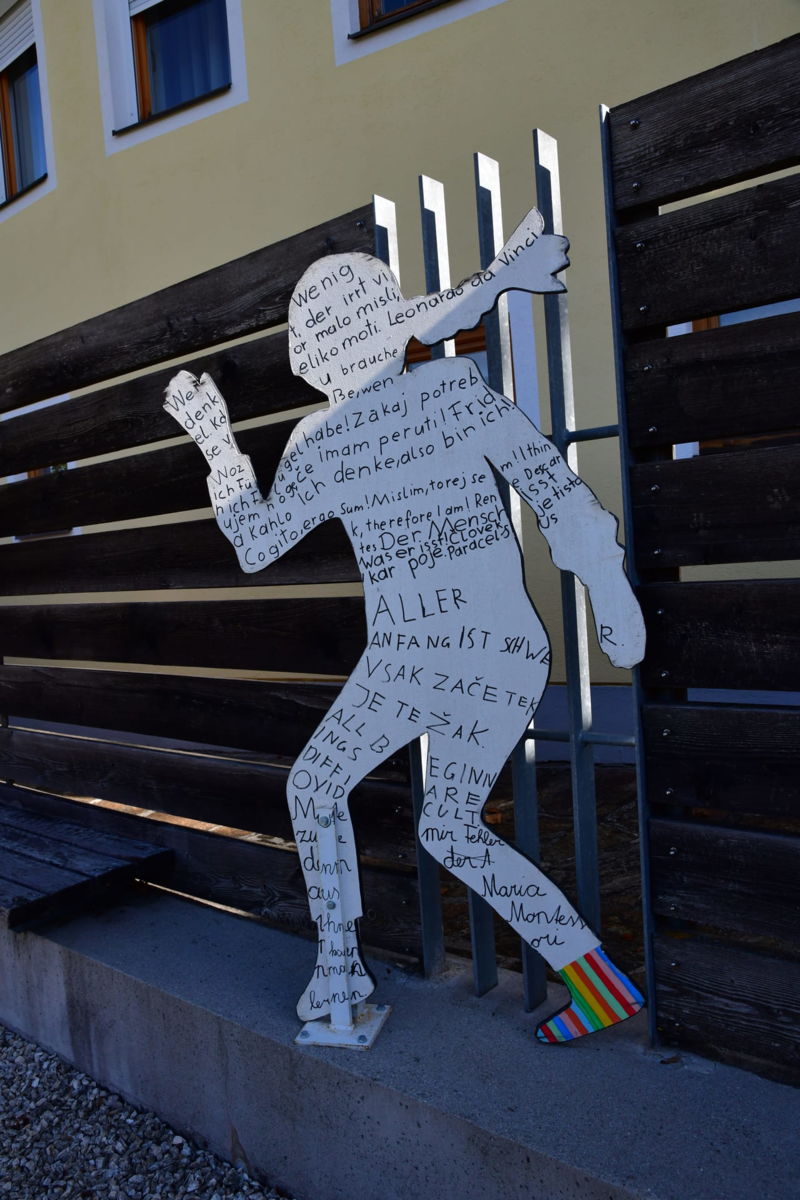 wenig
der irrt vi
or malo misli,
eliko moti. Leonardo da Vinci
u brauche
Beiwen
We
denk
el Ka
se v
Woz
ich Fü
n ich F
ujem n
a Kahlo
ügel habe! Zakaj potreb
noge če imam peruti! Frid
ich denke, also bin ich
Cogito, ergo Sum! Mislim, torej se
m! I thin
k, therefore I am! Ren
e Descar
tes Der Mensch
isst
was er ist! Človek
je tisto
kar poje. Paracels
us
R.
ALLER
ANFANG IST SCHWE
VSAK ZAČETEK
JE TEŽAK.
ALL B
EGINN
INGS
ARE
DIFFI
CULT
OVID
mir Fehler
zu
der A
denn
Maria
aus
Montess
ori
ihne
lernen